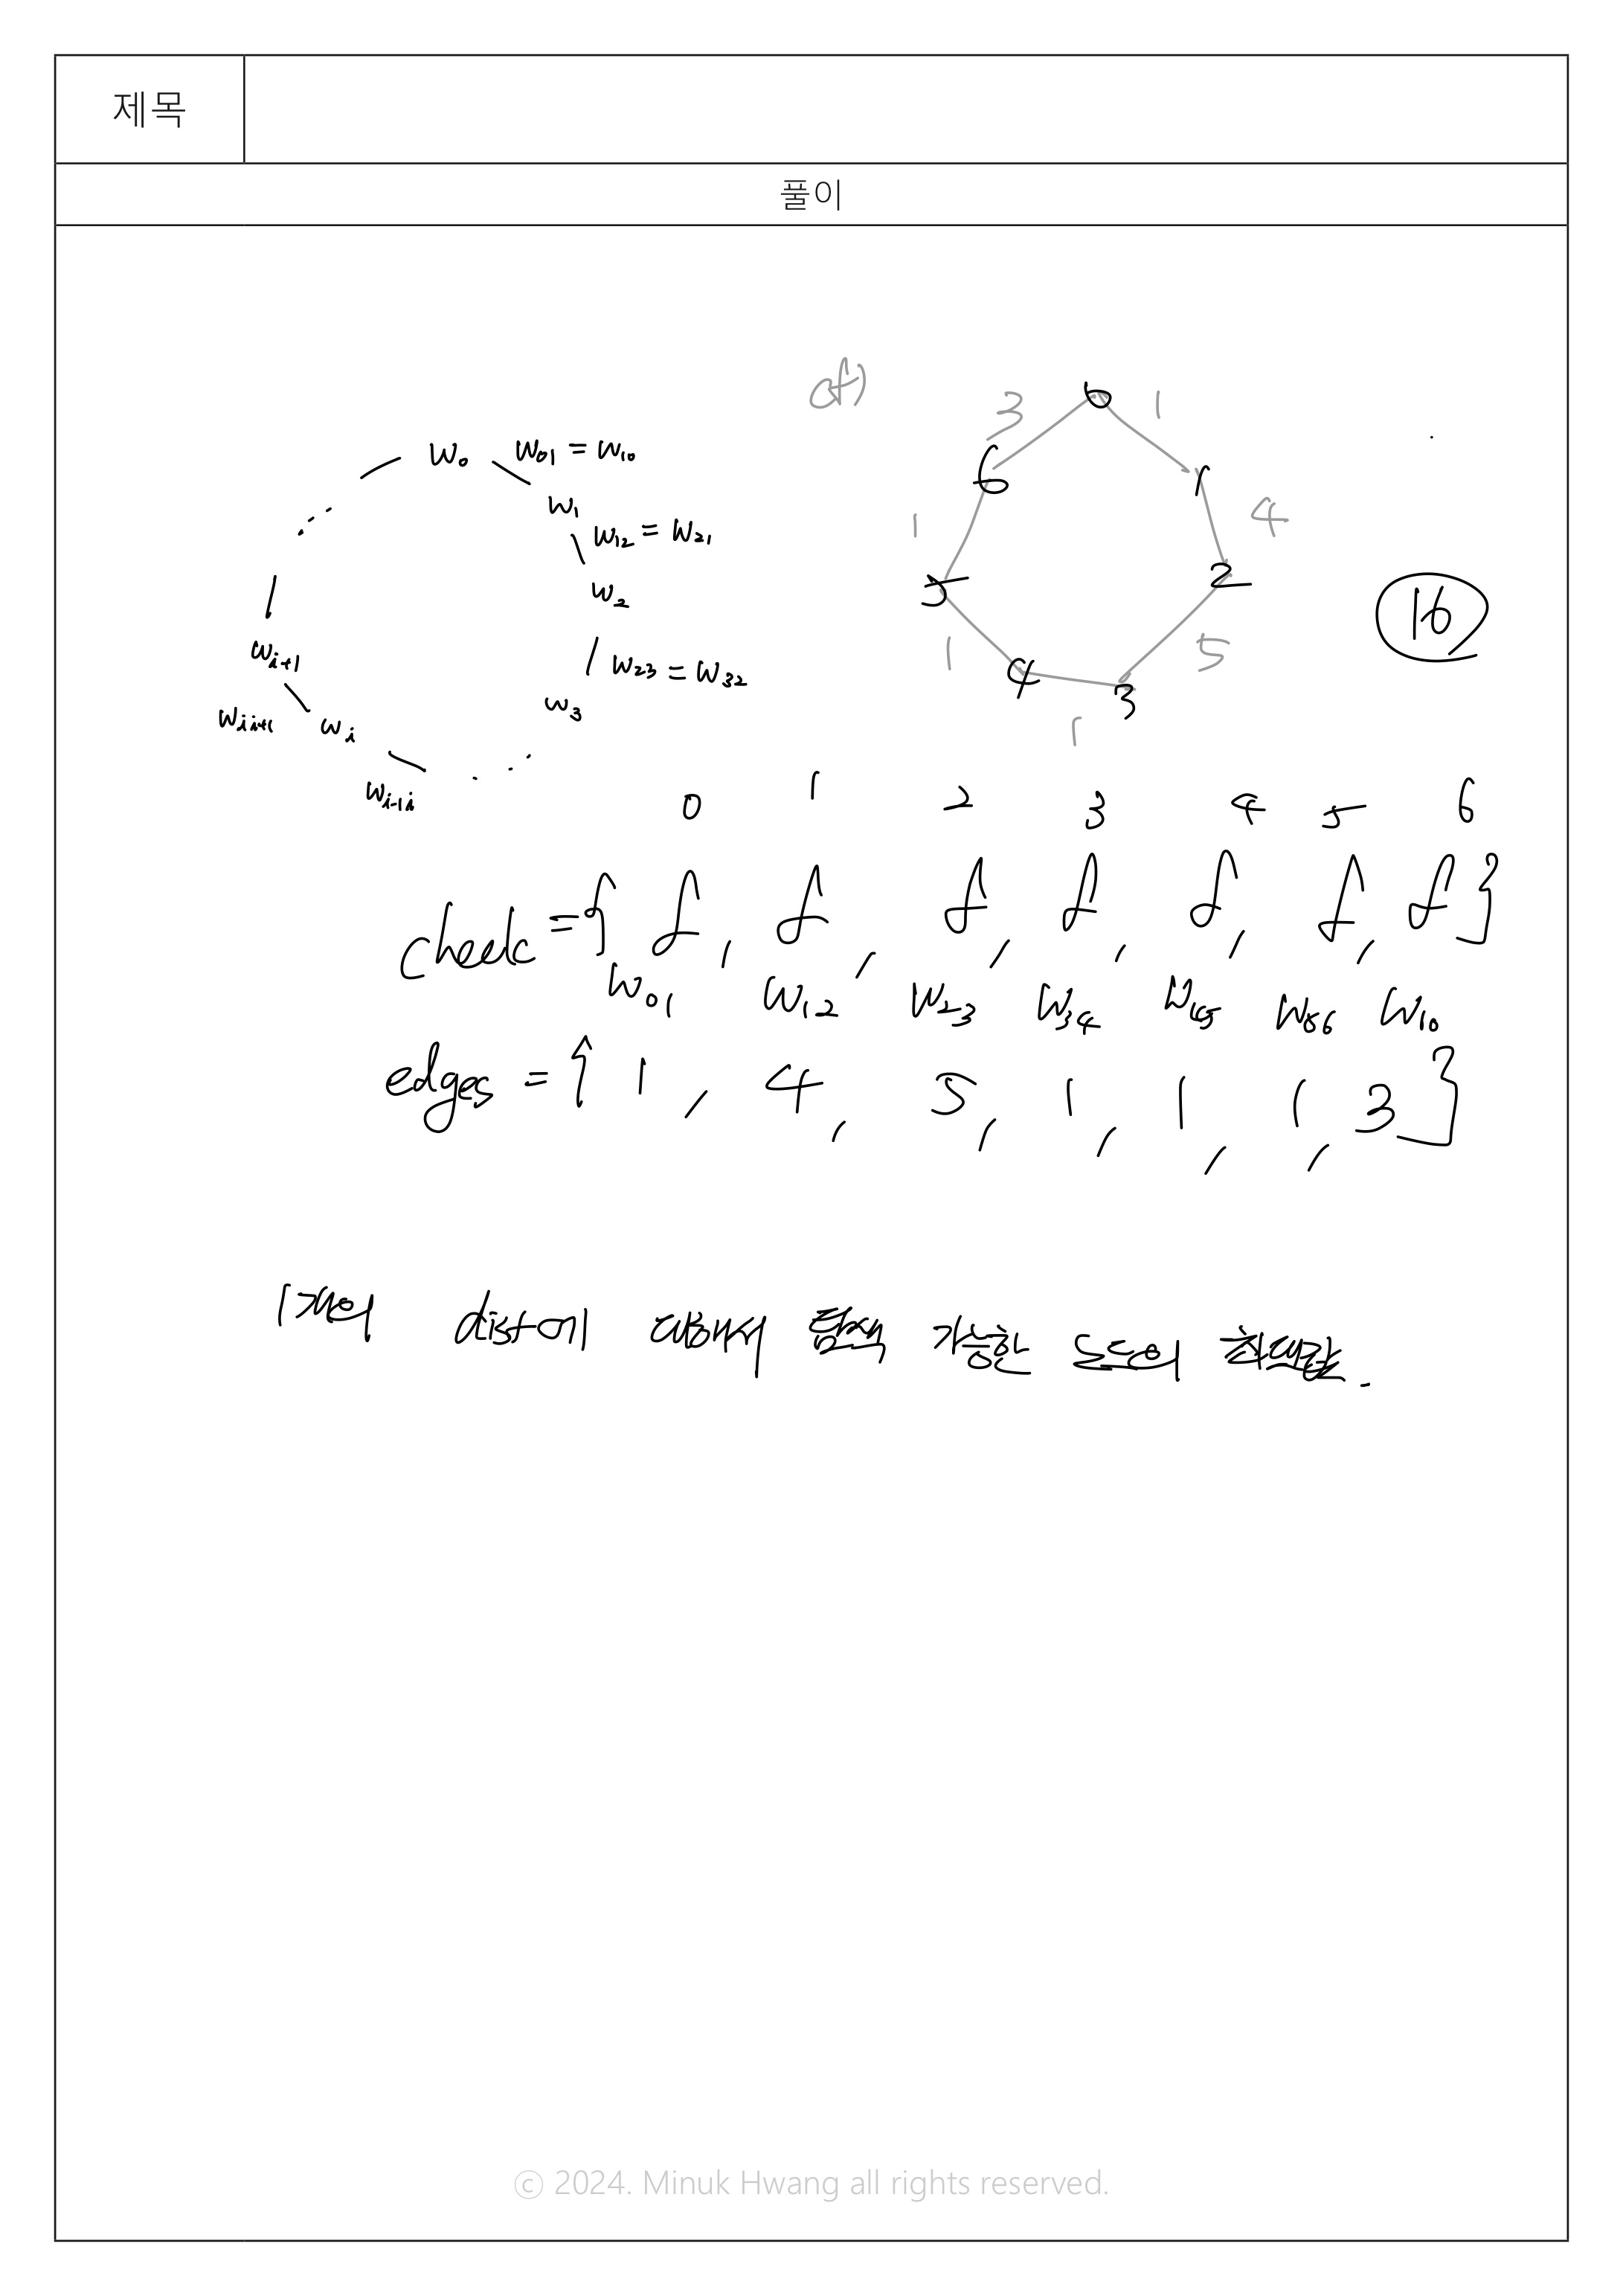 제목
풀이
w₀ w₀₁ = w₁₀
w₁
w₁₂ = w₂₁
w₂
w₂₃ = w₃₂
w₃
wᵢ₊₁
wᵢᵢ₊₁ wᵢ
wᵢ₋₁ᵢ
3 0 1
6 1
1 4
5 2
1 5
4 3
1
16
0 1 2 3 4 5 6
check = { f, f, f, f, f, f, f }
w₀₁ w₁₂ w₂₃ w₃₄ w₄₅ w₅₆ w₁₀
edges = { 1, 4, 5, 1, 1, 1, 3 }
1개의 dist에 대해서 탐색 가능한 노드의 최대값.
© 2024. Minuk Hwang all rights reserved.